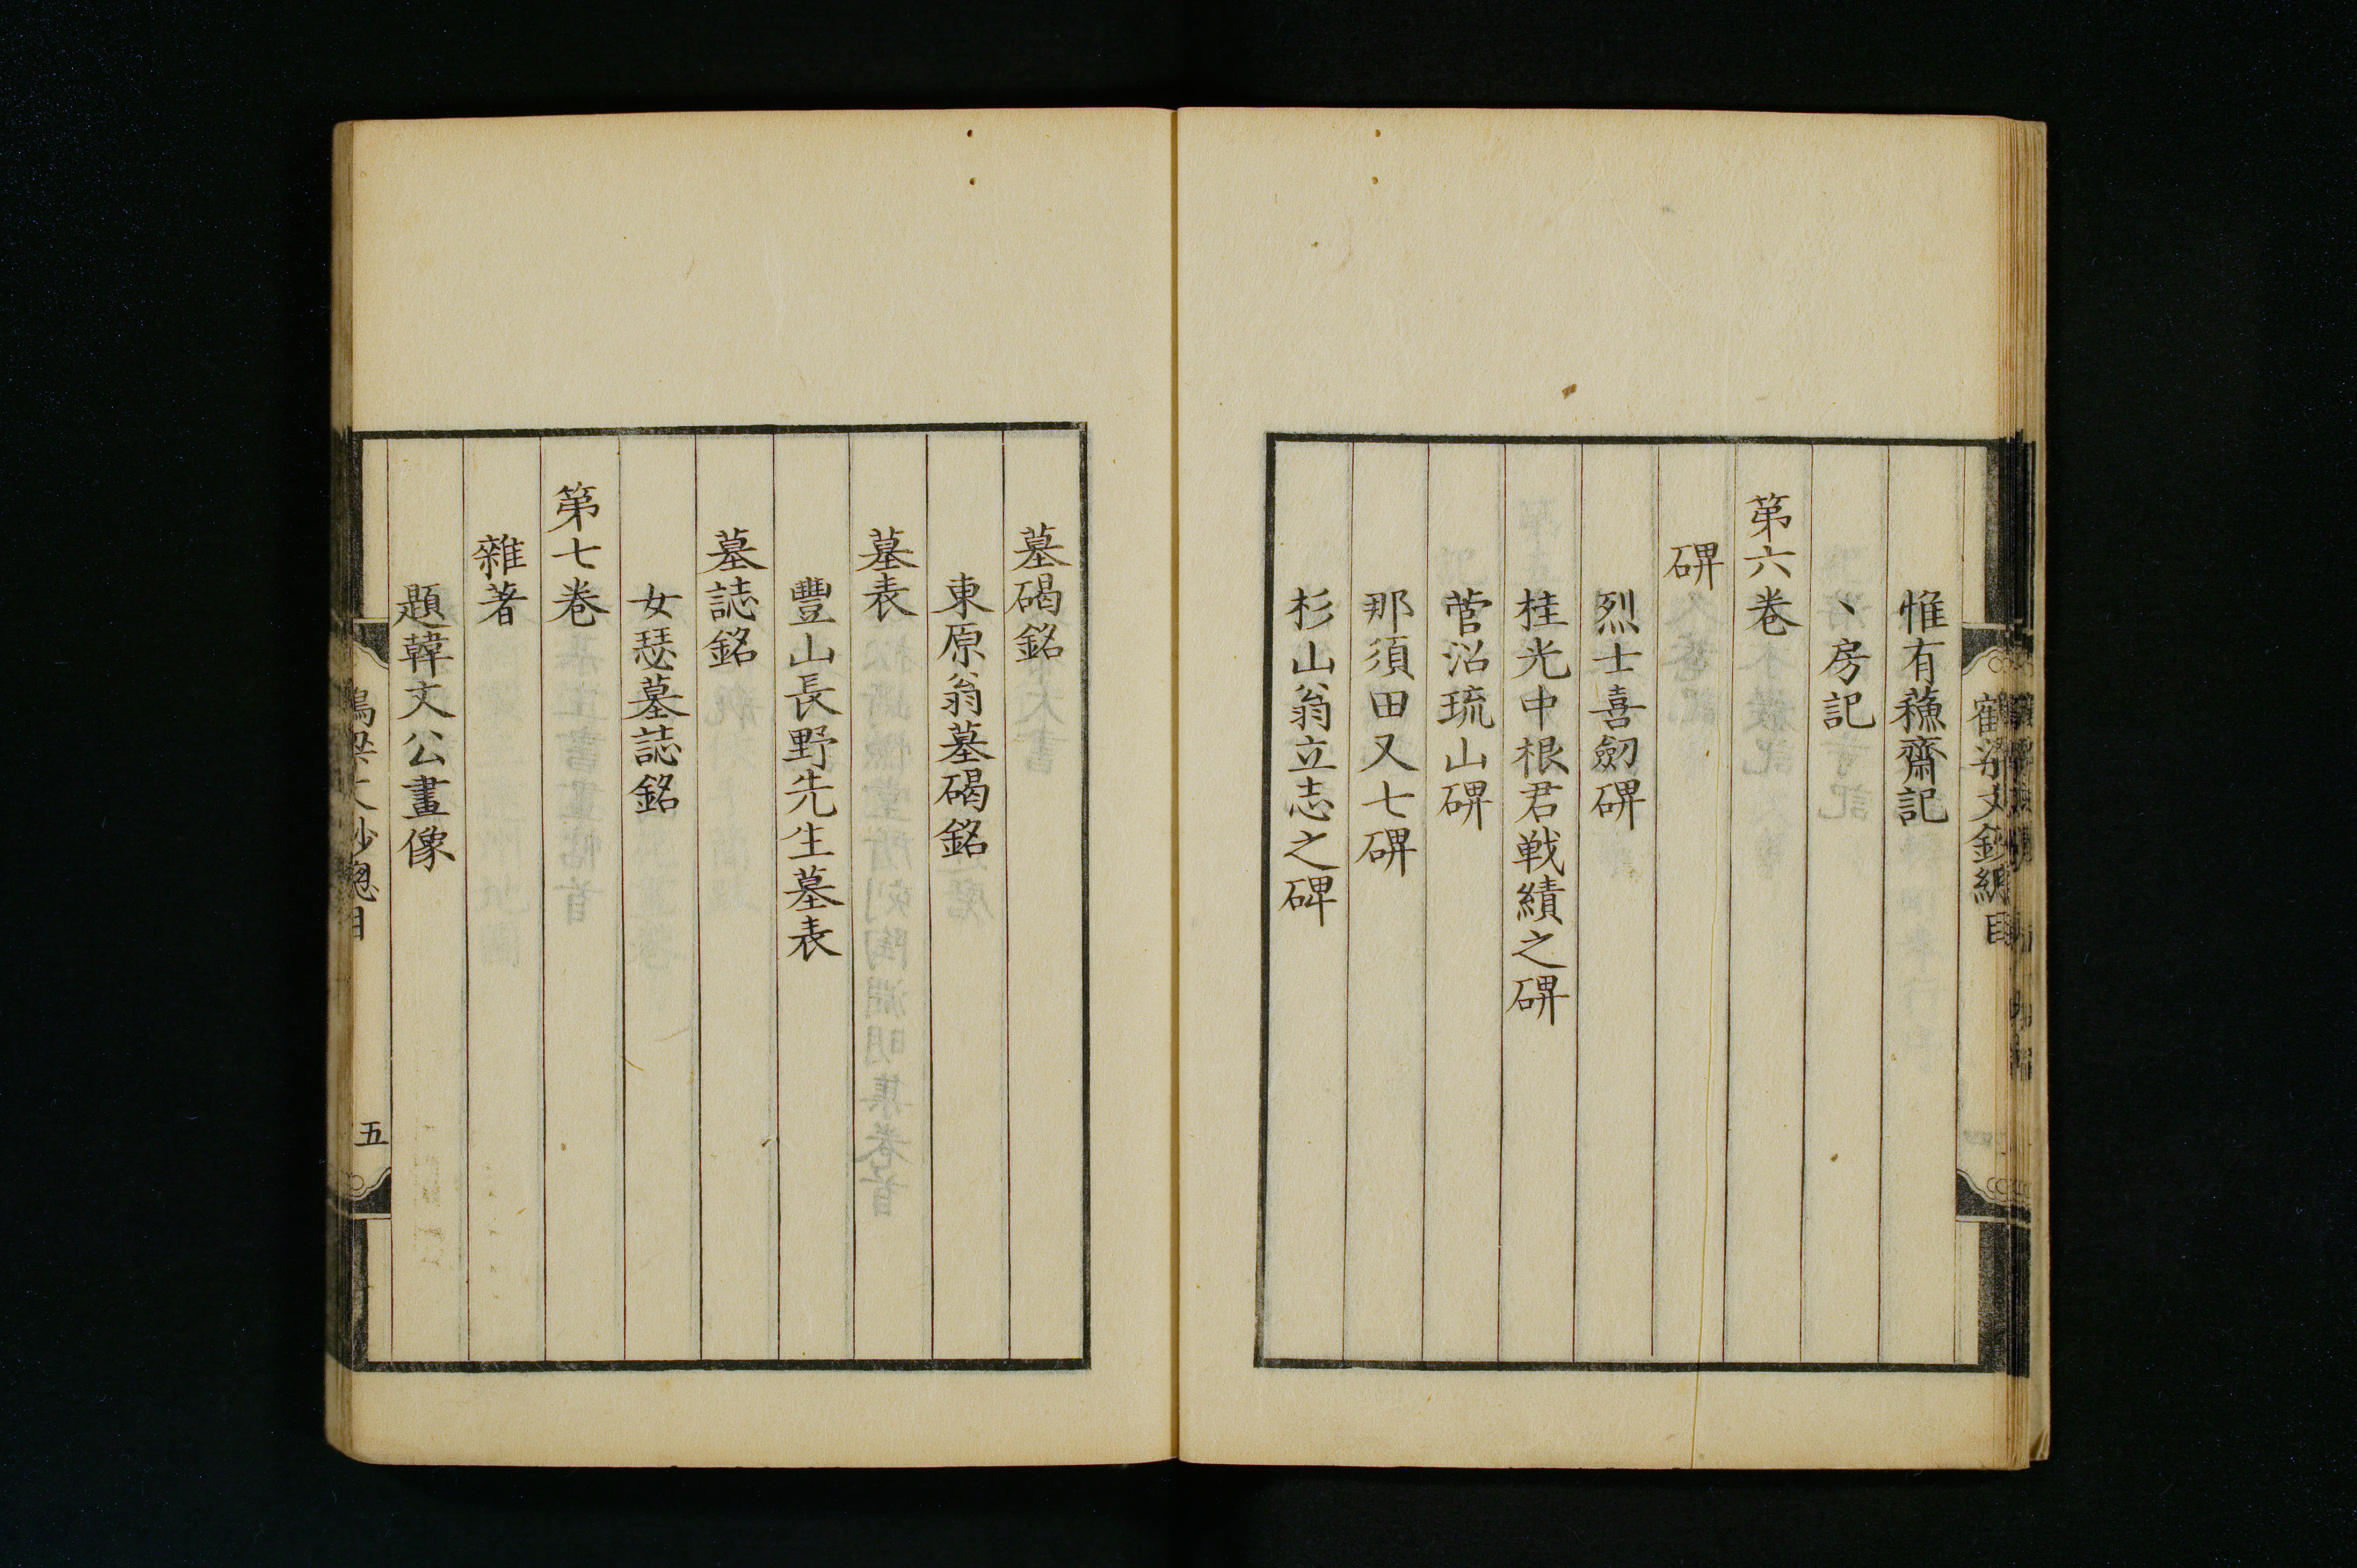 惟有蘓齋記
丶房記
第六卷
碑
烈士喜劒碑
桂光中根君戦績之碑
菅沼琉山碑
那須田又七碑
杉山翁立志之碑
墓碣銘
東原翁墓碣銘
墓表
豐山長野先生墓表
墓誌銘
女瑟墓誌銘
第七卷
雜著
題韓文公畫像
五